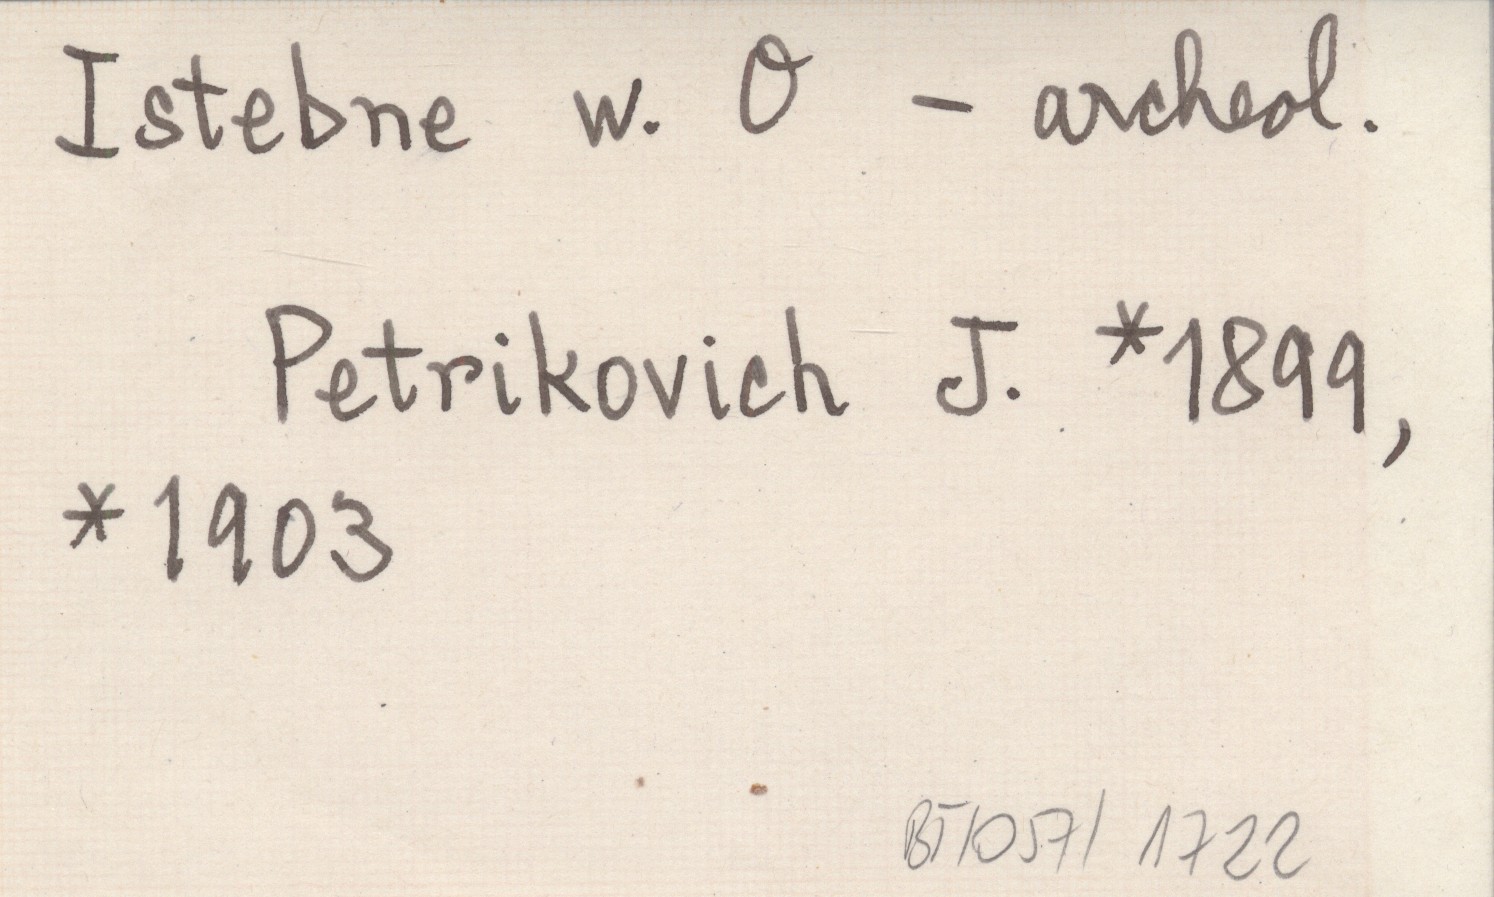 Istebne w. O - archeol.
Petrikovich J. *1899,
*1903
BT/057/ 1722